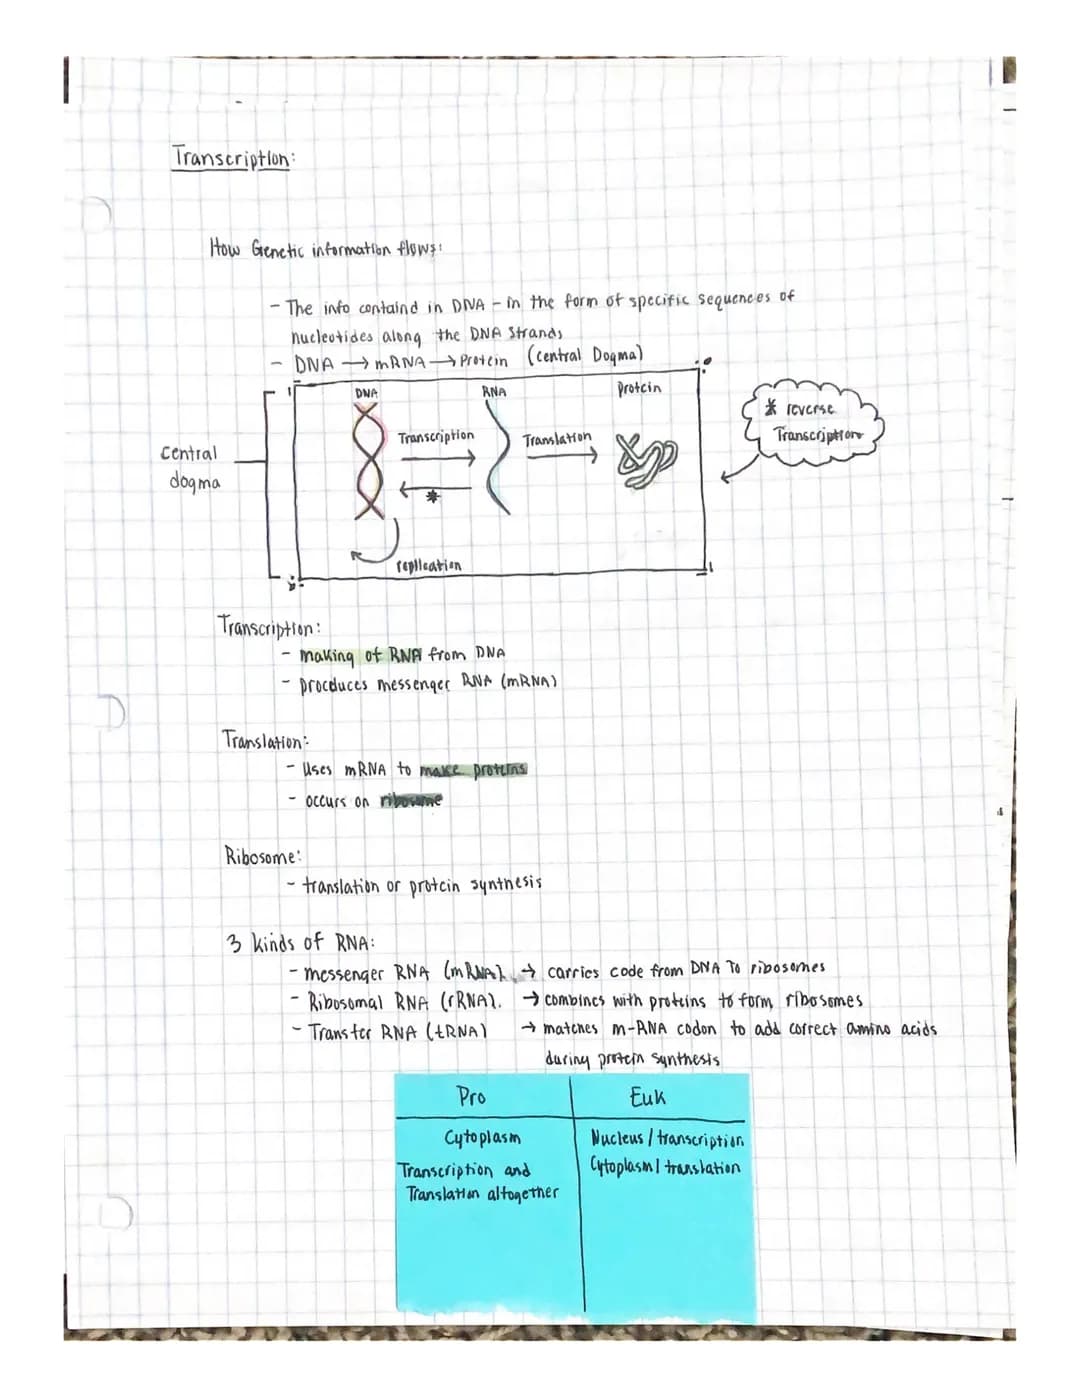 Transcription:
How Genetic information flows:
- The info containd in DNA - in the form of specific sequences of
nucleotides along the DNA Strands
- DNA → mRNA → Protein (central Dogma)
DNA RNA Protein
Transcription Translation
*
replication
central
dogma
* reverse
Transcription
Transcription:
- making of RNA from DNA
- procduces messenger RNA (mRNA)
Translation:
- Uses mRNA to make proteins
- occurs on ribosome
Ribosome:
- translation or protein synthesis
3 kinds of RNA:
- messenger RNA (mRNA) → carries code from DNA To ribosomes
- Ribosomal RNA (rRNA). → combines with proteins to form ribosomes
- Transfer RNA (tRNA) → matches m-RNA codon to add correct amino acids
during protein synthesis
Pro Euk
Cytoplasm Nucleus / transcription
Transcription and Cytoplasm / translation
Translation altogether